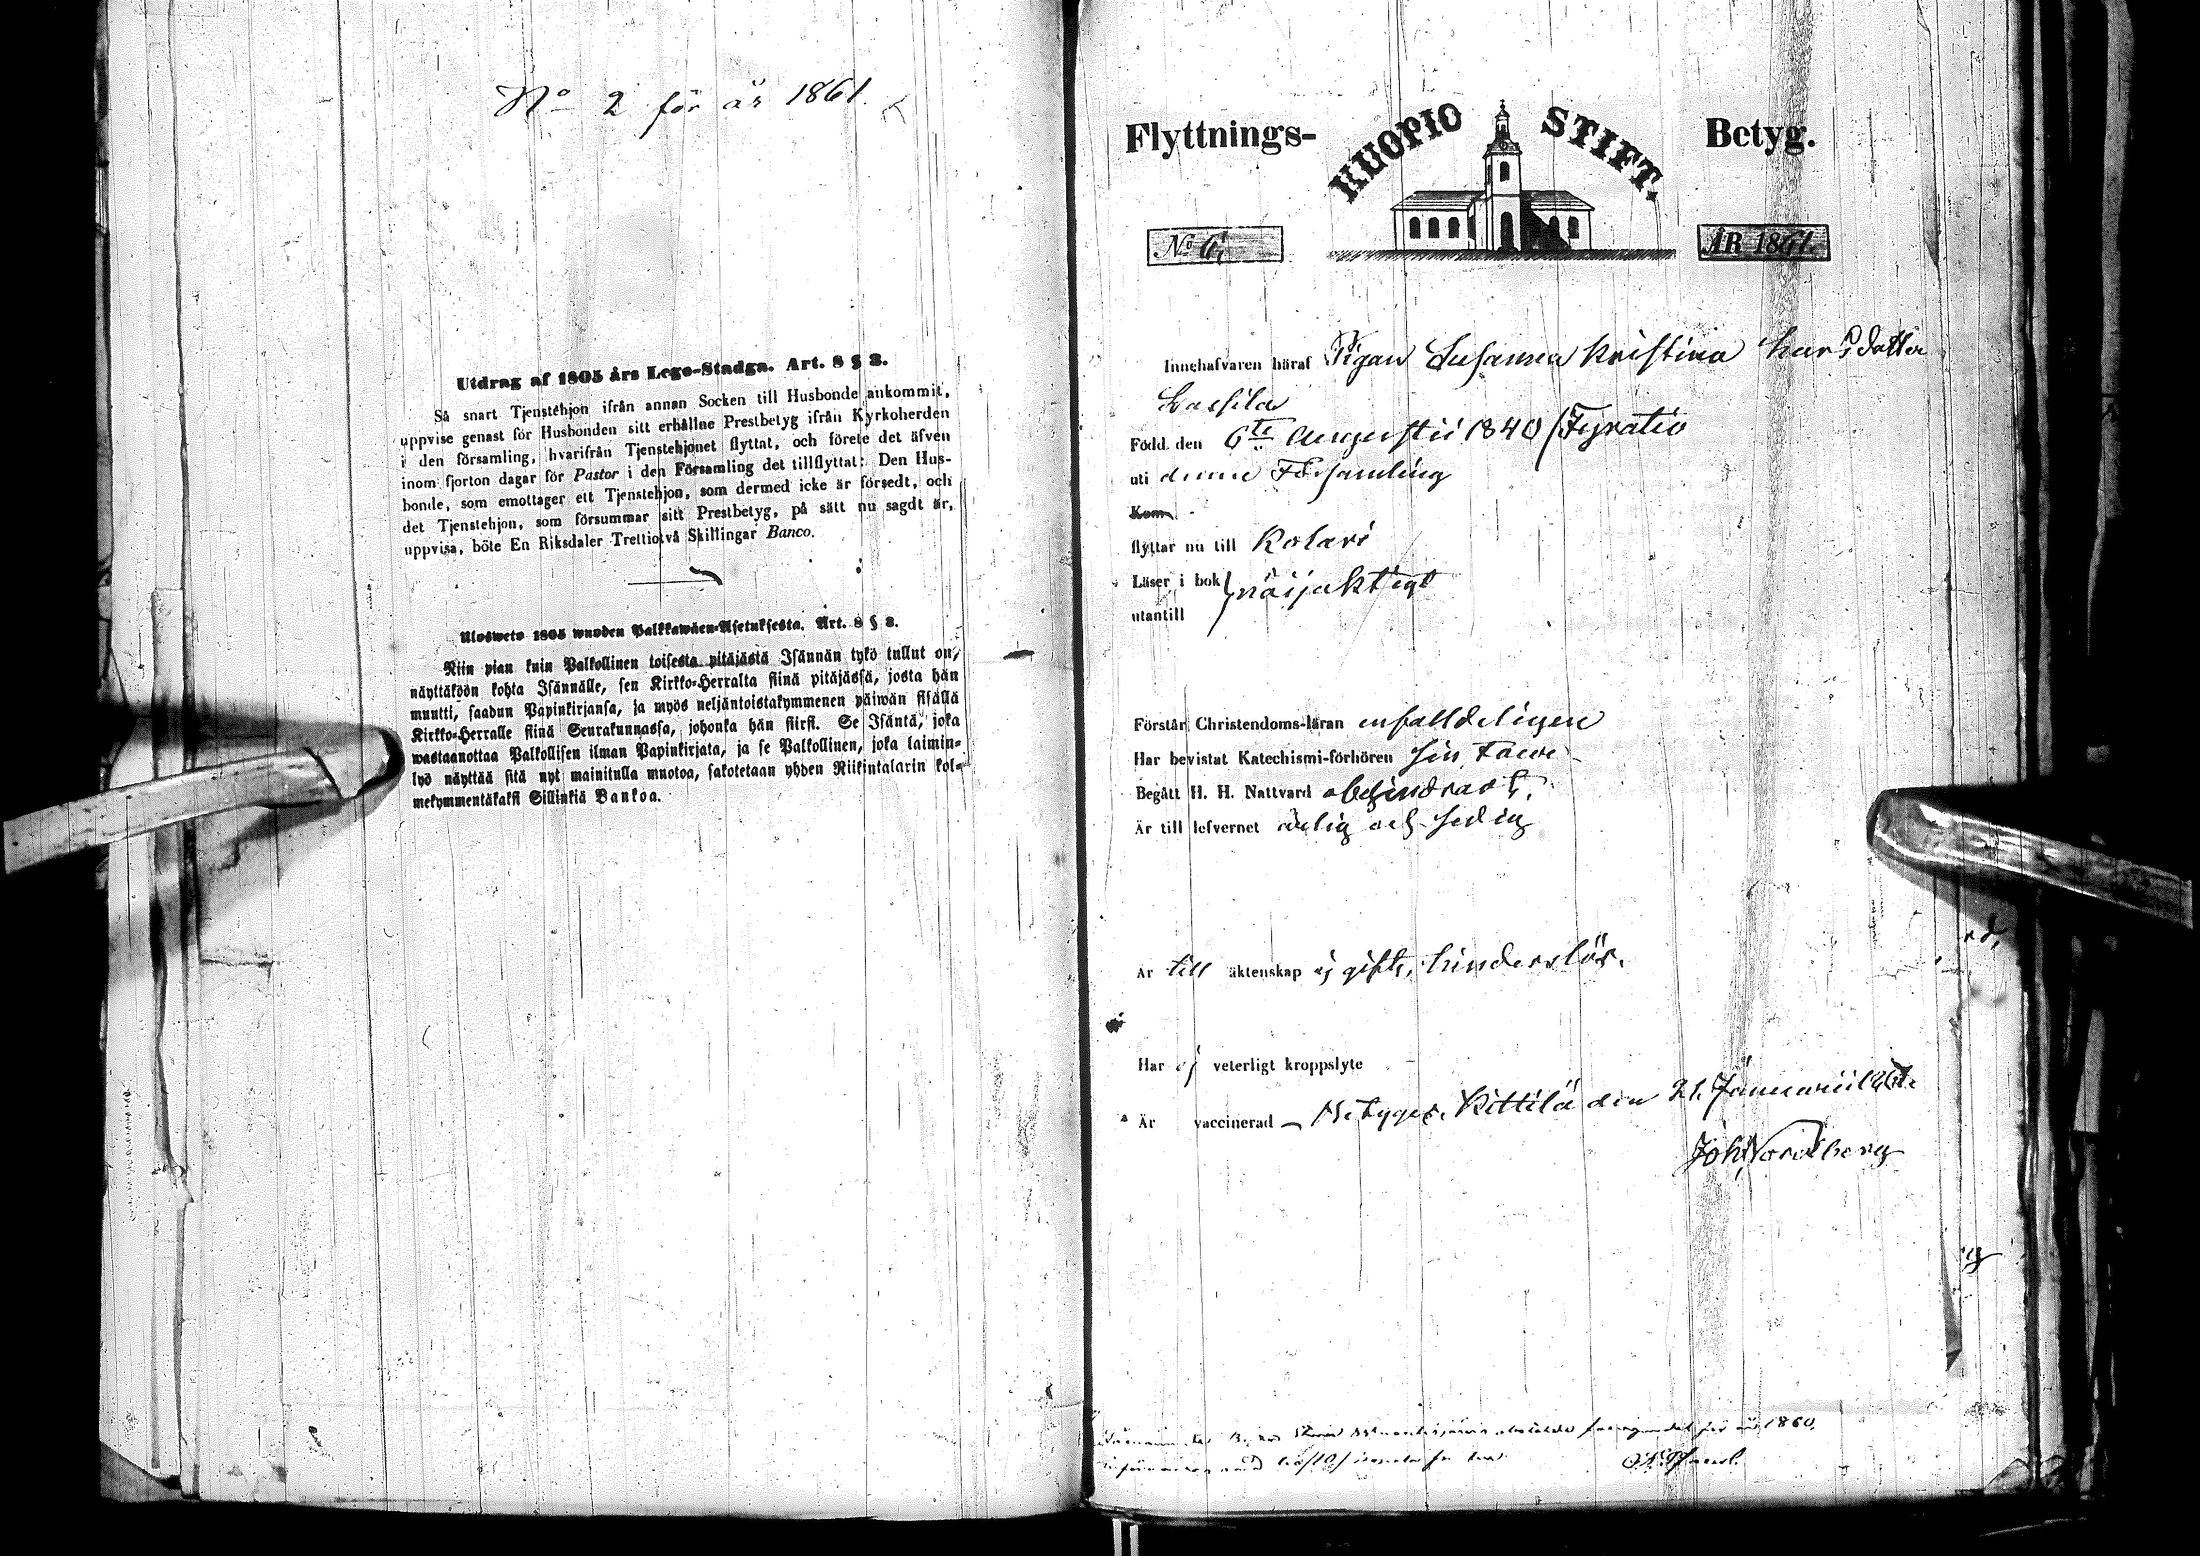 No 2 för år 1861.
Utdrag af 1805 års Lego-Stadga. Art. 8 § 3.
Så snart Tjenstehjon ifrån annan Socken till Husbonde ankommit,
uppvise genast för Husbonden sitt erhållne Prestbetyg ifrån Kyrkoherden
i den församling, hvarifrån Tjenstehjonet flyttat, och förete det äfven
inom fjorton dagar för Pastor i den Församling det tillflyttat: Den Hus-
bonde, som emottager ett Tjenstehjon, som dermed icke är försedt, och
det Tjenstehjon, som försummar sitt Prestbetyg, på sätt nu sagdt är,
uppvisa, böte En Riksdaler Trettiotvå Skillingar Banco.
Ulosweto 1805 wuoden Palkkawäen-Asetuksesta. Art. 8 § 3.
Niin pian kuin Palkollinen toisesta pitäjästä Isännän tykö tullut on,
näyttäköön kohta Isännälle, sen Kirkko-Herralta siinä pitäjässä, josta hän
muutti, saadun Papinkirjansa, ja myös neljäntoistakymmenen päiwän sisällä
Kirkko-Herralle siinä Seurakunnassa, johonka hän siirsi. Se Isäntä, joka
wastaanottaa Palkollisen ilman Papinkirjata, ja se Palkollinen, joka laimin-
lyö näyttää sitä nyt mainitulla muotoa, sakotetaan yhden Riikintalarin kol-
mekymmentäkaksi Sillinkiä Bankoa.
Flyttnings- KUOPIO STIFT. Betyg.
No 6 ÅR 1861.
Innehafvaren häraf Pigan Susanna Kristina Larsdotter
Lassila
Född den 6te Augusti 1840 /Fyratio
uti denna Församling
Kom
flyttar nu till Kolari
Läser i bok nöijaktigt
utantill
Förstår Christendoms-läran enfalldeligen
Har bevistat Katechismi-förhören
Begått H. H. Nattvard obehindradt,
Är till lefvernet ärlig och sedig
Är till äktenskap ej gift, hinderslös.
Har ej veterligt kroppslyte
Är vaccinerad – Betygar. Kittilä den 21. Januarii 1861.
Joh. Nordberg
1860.